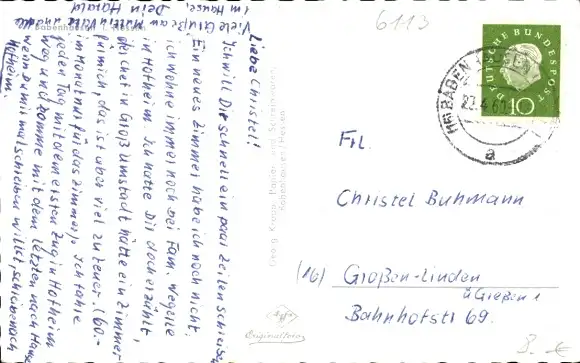 Liebe Christel!
Ich will Dir schnell ein paar Zeilen schreiben
Ein neues Zimmer habe ich noch nicht.
ich wohne immer noch bei Fam.
in Hotheim. Ich hatte Dir doch erzählt,
der Chef in Groß Umstadt hätte ein Zimmer
für mich, das ist aber viel zu teuer. (60.-
im Monat nur für das Zimmer). Ich fahre
jeden Tag mit dem ersten Zug in Hotheim
weg und komme mit dem letzten nach Hause
wenn Du mir mal schreiben willst schreib nach
Hotheim.
Viele Grüße am Mutti Vati und alle
im Hause. Dein Harald
Babenhausen i. Hessen
Georg Krapp, Papier- und Schreibwaren,
Babenhausen/Hessen
Agfa
Originalfoto
6113
DEUTSCHE BUNDESPOST
10
(16) BABENHAUSEN
23.4.60
a
Frl.
Christel Buhmann
(16) Großen-Linden
ü Gießen 1
Bahnhofstr 69.
8.-€